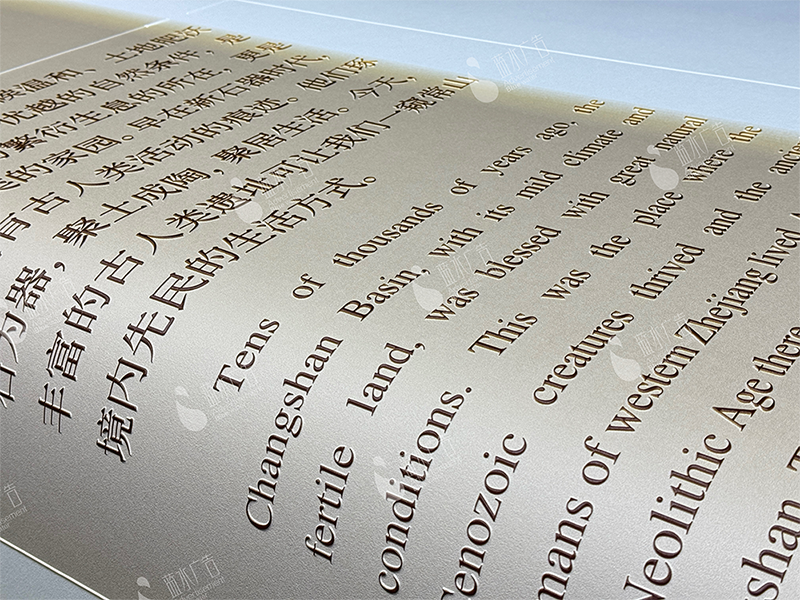 温和、土地肥沃
优越的自然条件，是
繁衍生息的所在，更是
的家园。早在新石器时代，
有古人类活动的痕迹。他们琢
为器，聚土成陶，聚居生活。今天，
丰富的古人类遗址可让我们一窥常山
境内先民的生活方式。
Tens of thousands of years ago, the
Changshan Basin, with its mild climate and
fertile land, was blessed with great natural
conditions. This was the place where the
Cenozoic creatures thrived and the ancient
of western Zhejiang lived
Neolithic Age there
蓝水广告